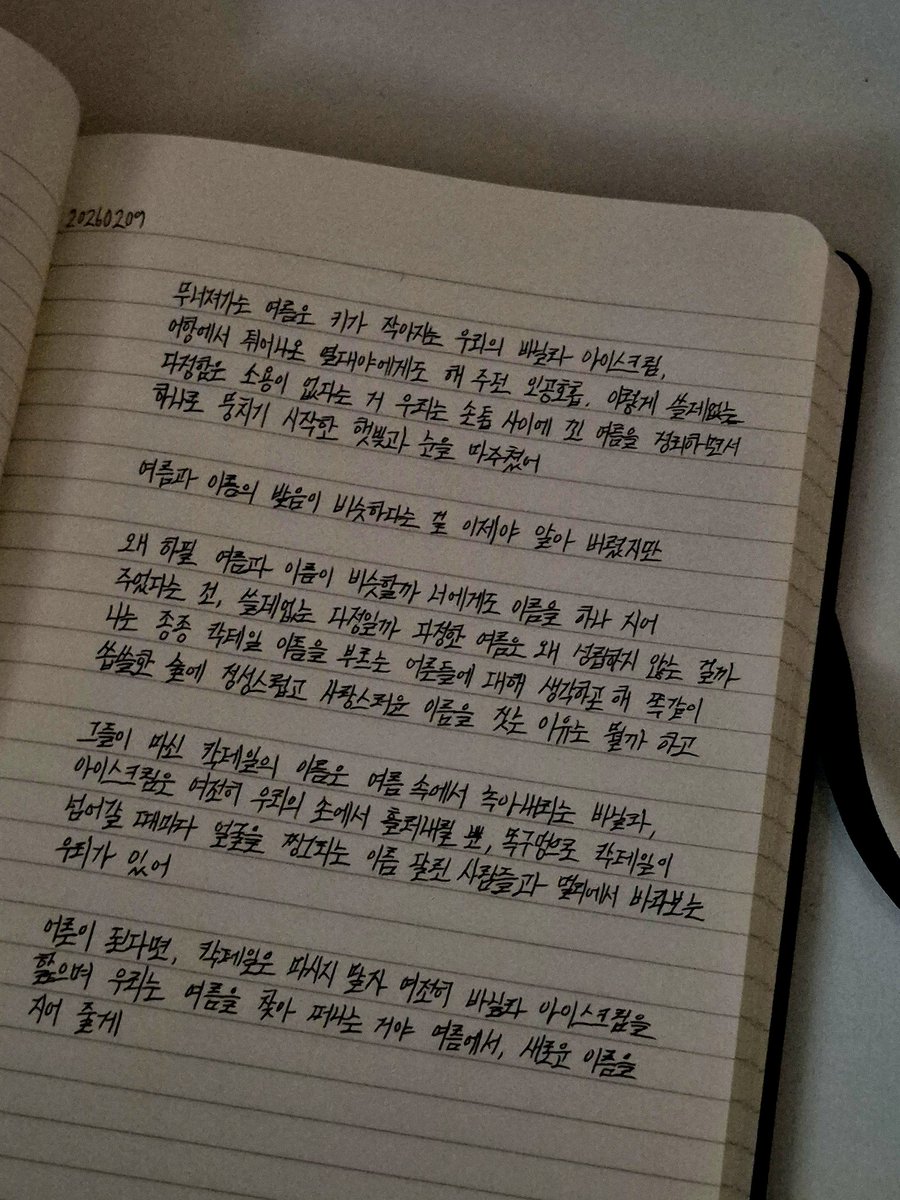 20260209
무너져가는 여름은 키가 작아지는 우리의 바닐라 아이스크림,
어항에서 튀어나온 열대야에게도 해 주던 인공호흡. 이렇게 쓸데없는
다정함은 소용이 없다는 거 우리는 손톱 사이에 낀 여름을 정리하면서
하나로 뭉치기 시작한 햇빛과 눈을 마주쳤어
여름과 이름의 발음이 비슷하다는 걸 이제야 알아 버렸지만
왜 하필 여름과 이름이 비슷할까 너에게도 이름을 하나 지어
주었다는 것, 쓸데없는 다정일까 다정한 여름은 왜 성립하지 않는 걸까
나는 종종 칵테일 이름을 부르는 어른들에 대해 생각하곤 해 똑같이
씁쓸한 술에 정성스럽고 사랑스러운 이름을 짓는 이유는 뭘까 하고
그들이 마신 칵테일의 이름은 여름 속에서 녹아내리는 바닐라,
아이스크림은 여전히 우리의 손에서 흘러내릴 뿐, 목구멍으로 칵테일이
넘어갈 때마다 얼굴을 찡그리는 이름 팔린 사람들과 멀리에서 바라보는
우리가 있어
어른이 된다면, 칵테일은 마시지 말자 여전히 바닐라 아이스크림을
핥으며 우리는 여름을 찾아 떠나는 거야 여름에서, 새로운 이름을
지어 줄게